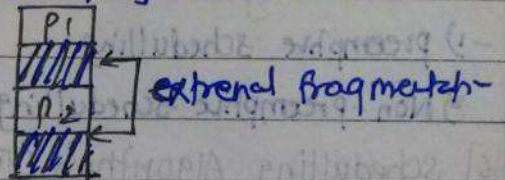 P1
extrenal fragmentatn-
P2